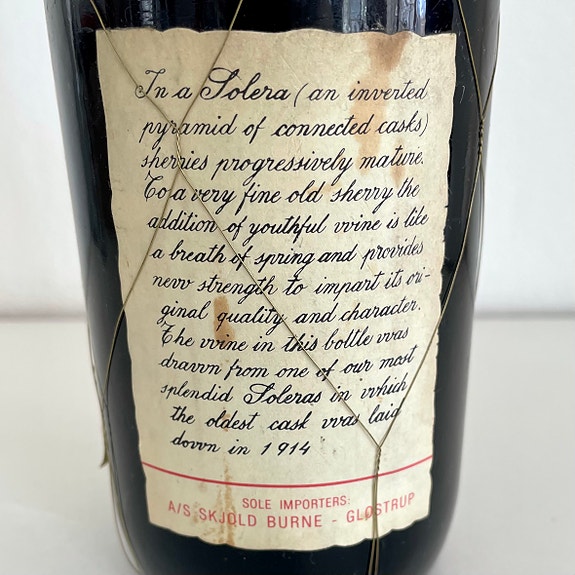 In a Solera (an inverted
pyramid of connected casks)
sherries progressively mature.
To a very fine old sherry the
addition of youthful wine is like
a breath of spring and provides
new strength to impart its ori-
ginal quality and character.
The wine in this bottle was
drawn from one of our most
splendid Soleras in which
the oldest cask was laid
down in 1914
SOLE IMPORTERS:
A/S SKJOLD BURNE - GLOSTRUP